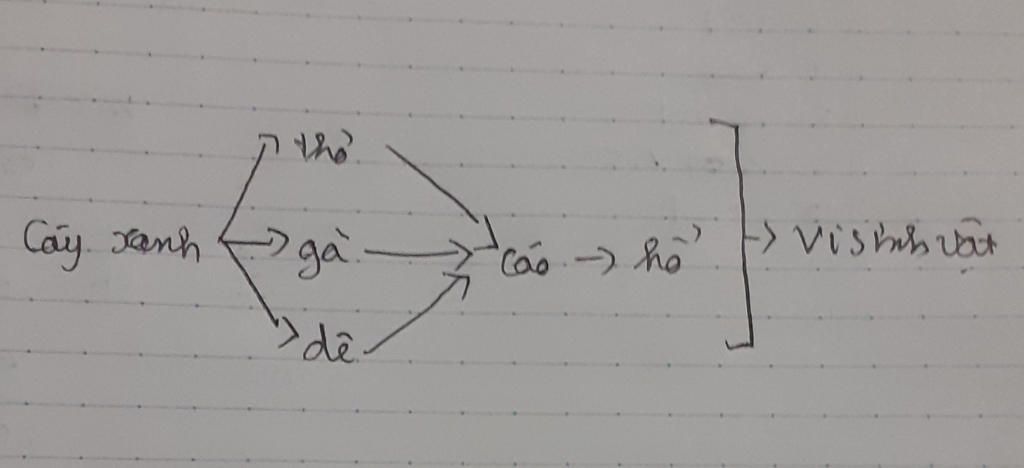 thỏ
Cây xanh → gà → cáo → hổ → vi sinh vật
dê